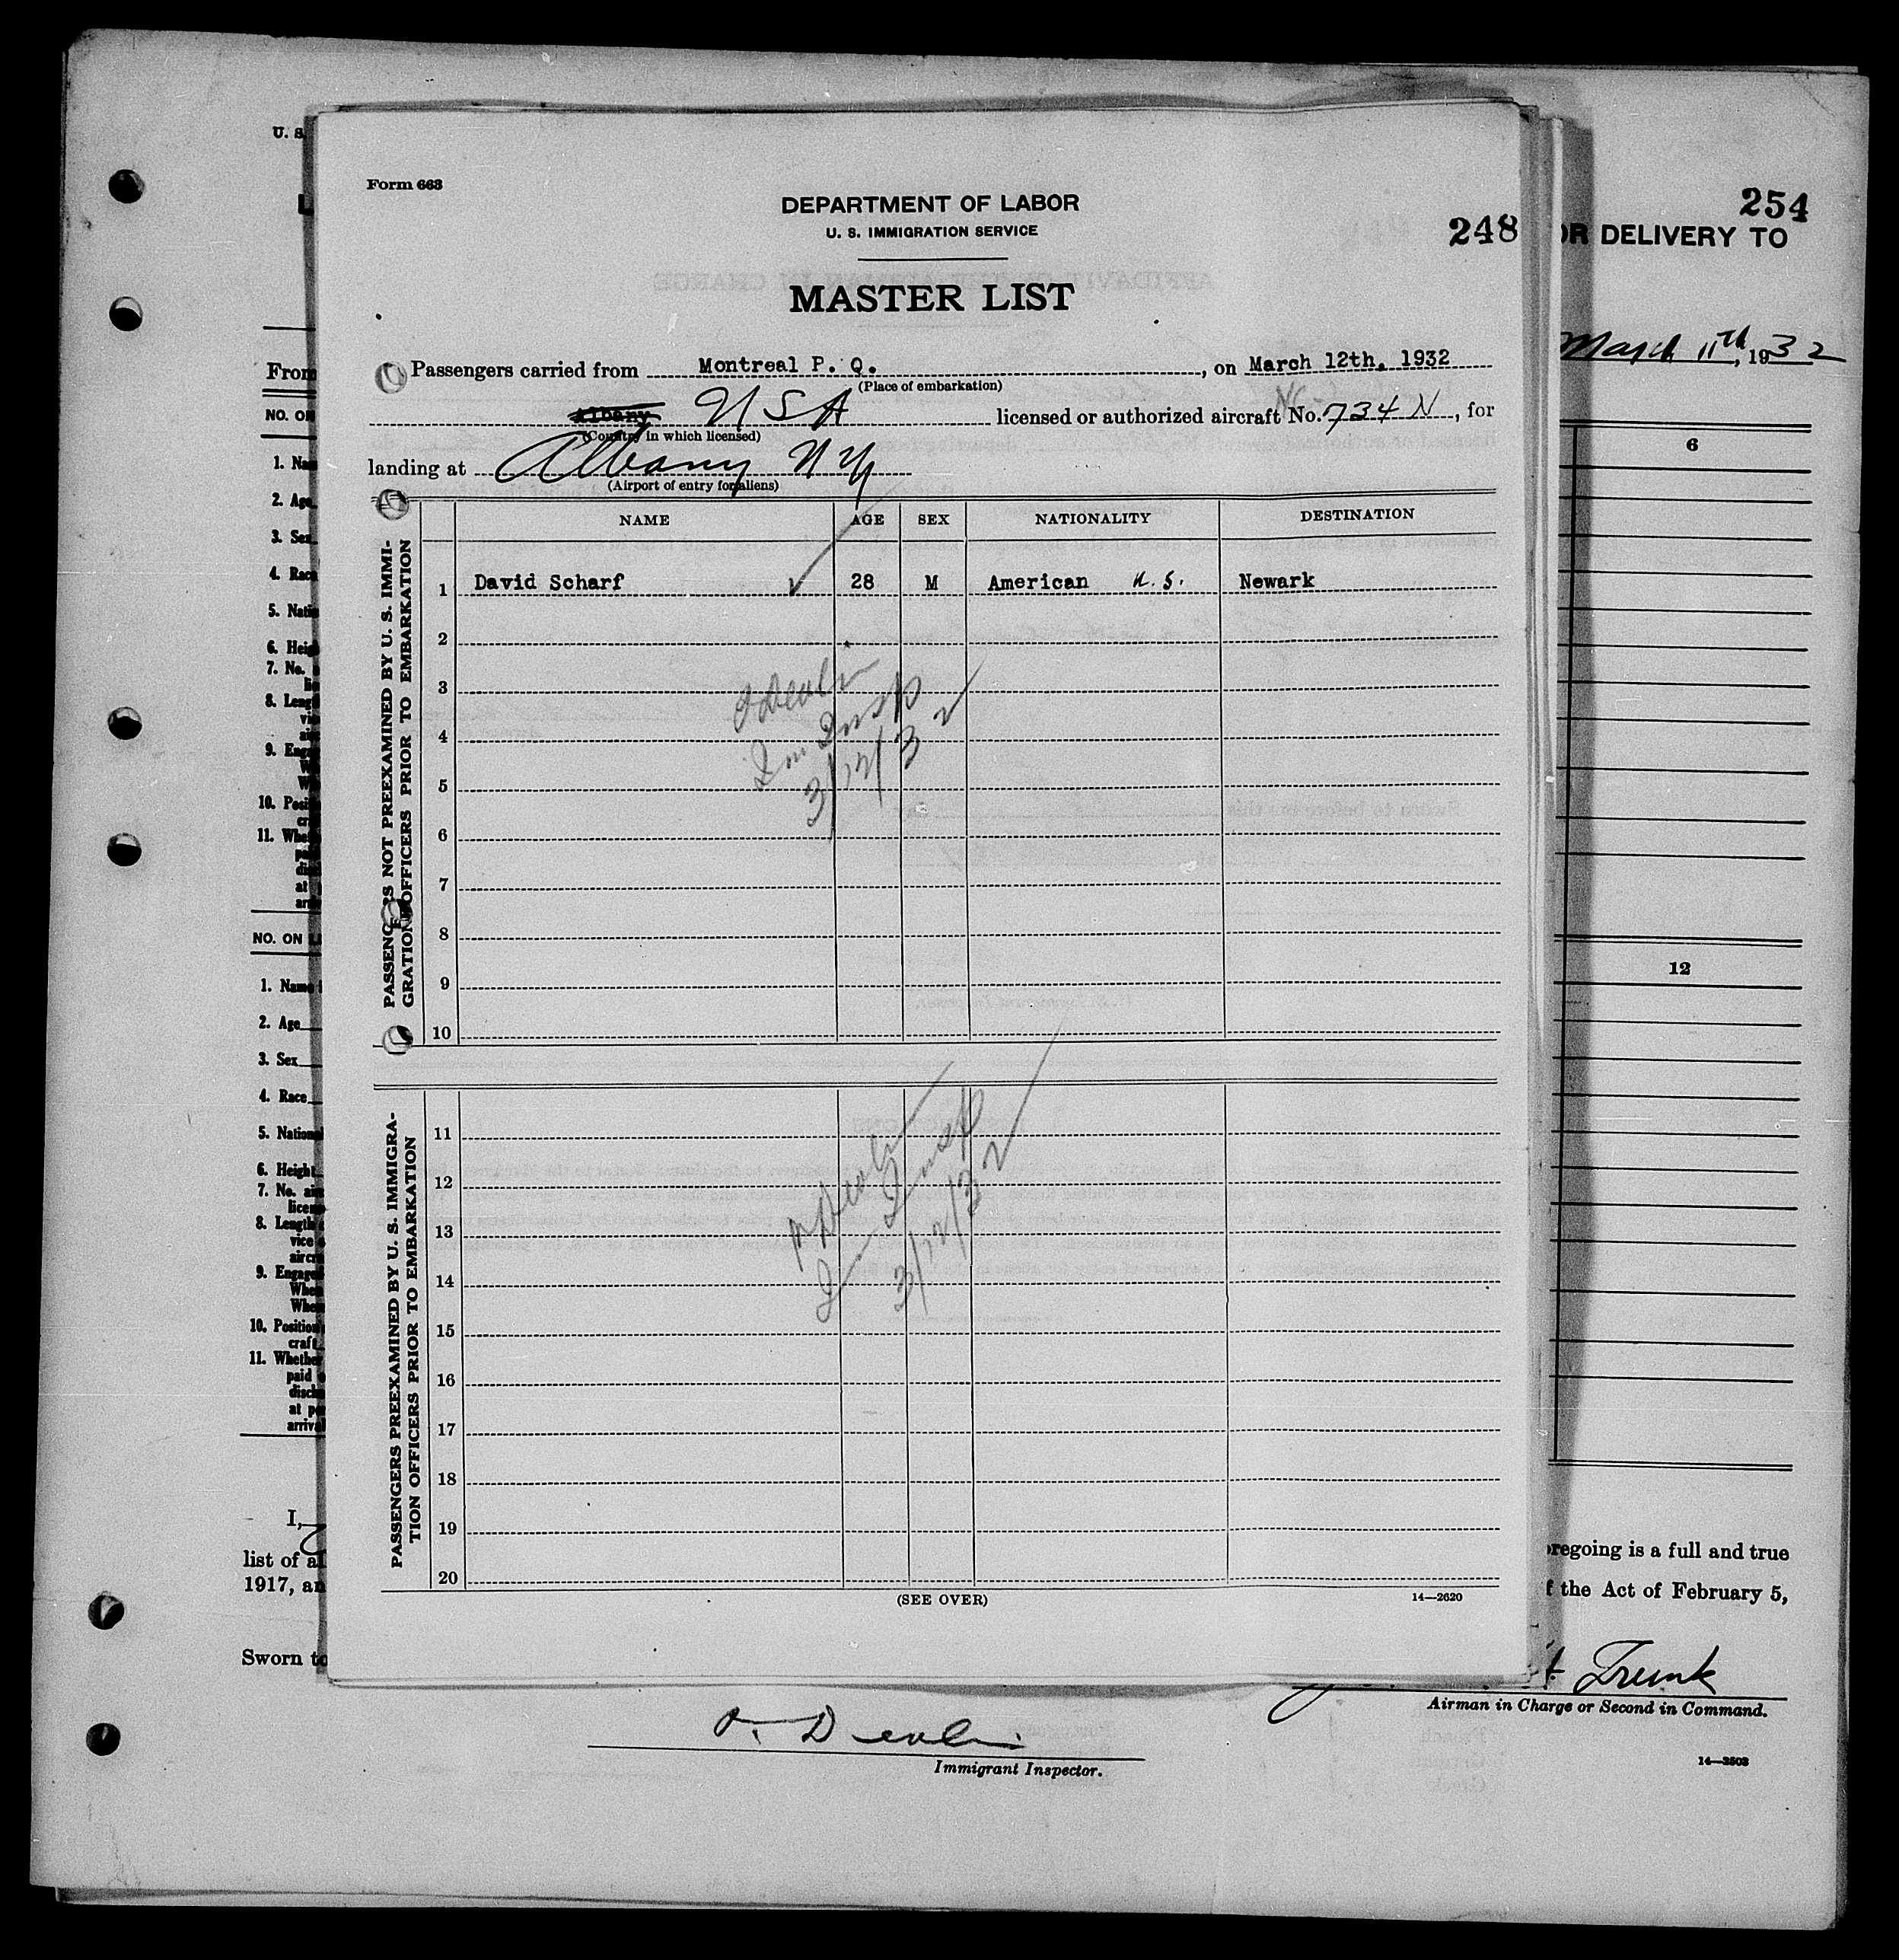 254
OR DELIVERY TO
March 11th, 1932
U. S.
Form 663
DEPARTMENT OF LABOR
U. S. IMMIGRATION SERVICE
248
MASTER LIST
Passengers carried from Montreal P. Q., on March 12th, 1932
(Place of embarkation)
Albany USA licensed or authorized aircraft No. NC- 734 N, for
(Country in which licensed)
landing at Albany N Y
(Airport of entry for aliens)
NAME AGE SEX NATIONALITY DESTINATION
PASSENGERS NOT PREEXAMINED BY U. S. IMMI-
GRATION OFFICERS PRIOR TO EMBARKATION
1 David Scharf 28 M American U. S. Newark
2
3
4
5
6
7
8
9
10
Im Insp
3/12/32
PASSENGERS PREEXAMINED BY U. S. IMMIGRA-
TION OFFICERS PRIOR TO EMBARKATION
11
12
13
14
15
16
17
18
19
20
Im Insp
3/12/32
(SEE OVER) 14—2620
From
NO. ON
1. Nam
2. Age
3. Sex
4. Race
5. Natio
6. Heig
7. No.
8. Leng
9. Engag
10. Posi
11. Whe
NO. ON LI
1. Name
2. Age
3. Sex
4. Race
5. National
6. Height
7. No. air
license
8. Length
vice
aircra
9. Engaged
When
Where
10. Position
craft
11. Whether
paid
disch
at po
arrival
6
12
I,
list of al
1917, an
oregoing is a full and true
f the Act of February 5,
Sworn to
Trunk
Airman in Charge or Second in Command.
Immigrant Inspector.
14—2503